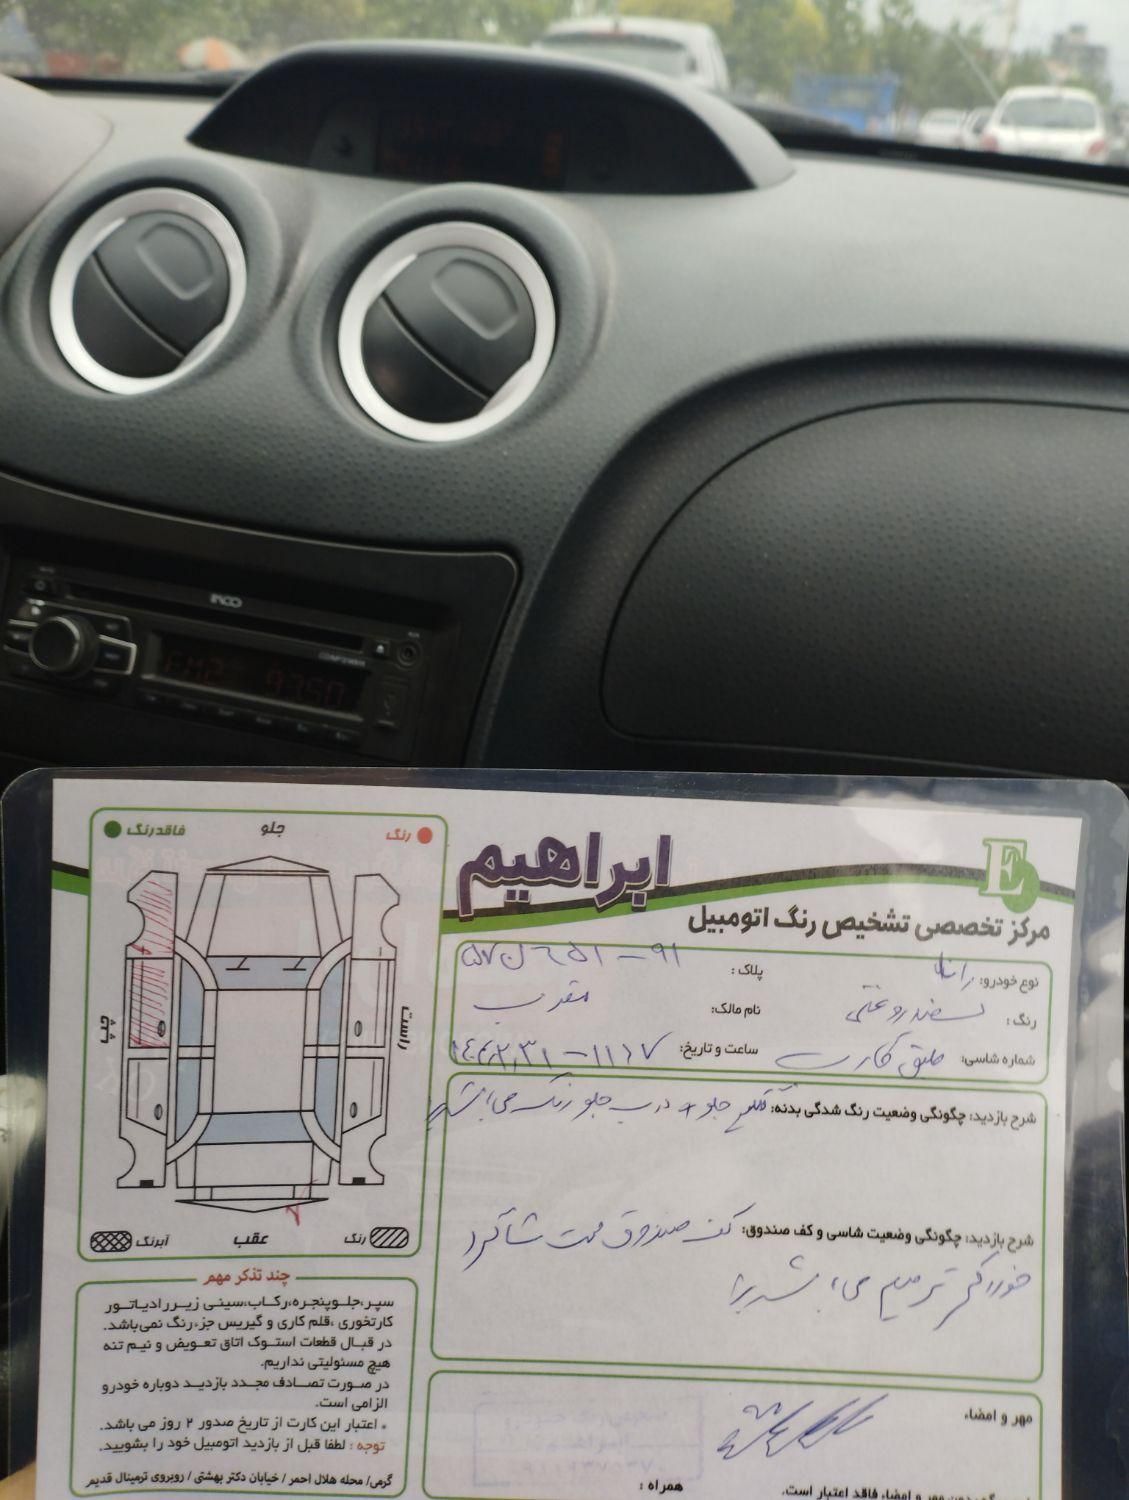 INCO
FM2 93.50
فاقد رنگ
جلو
رنگ
چپ
راست
آبرنگ
عقب
رنگ
ابراهیم
E
مرکز تخصصی تشخیص رنگ اتومبیل
نوع خودرو:
پلاک: ۹۱ - ۶۵۱
رنگ: سفید روغنی
نام مالک:
شماره شاسی: طبق کارت
ساعت و تاریخ: ۱۱:۱۷ -
شرح بازدید: چگونگی وضعیت رنگ شدگی بدنه: گلگیر جلو + درب جلو رنگ می باشد
شرح بازدید: چگونگی وضعیت شاسی و کف صندوق: کف صندوق سمت شاگرد
ترمیم می باشد
چند تذکر مهم
سپر،جلوپنجره،رکاب،سینی زیررادیاتور
کارتخوری ،قلم کاری و گیریس جزءرنگ نمی‌باشد.
در قبال قطعات استوک اتاق تعویض و نیم تنه
هیچ مسئولیتی نداریم.
در صورت تصادف مجدد بازدید دوباره خودرو
الزامی است.
* اعتبار این کارت از تاریخ صدور ۲ روز می باشد.
توجه : لطفا قبل از بازدید اتومبیل خود را بشویید.
گرمی/ محله هلال احمر / خیابان دکتر بهشتی / روبروی ترمینال قدیم
مهر و امضاء
همراه :
بدون مهر و امضاء فاقد اعتبار است.